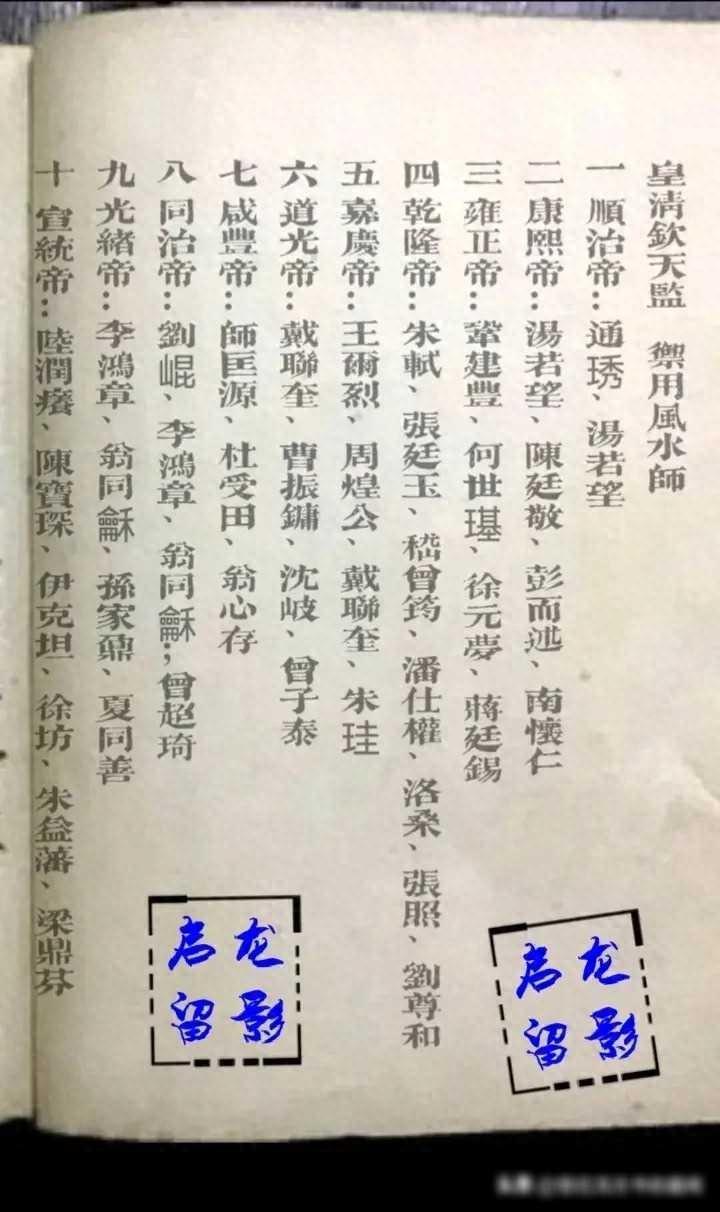 皇清欽天監　禦用風水師
一順治帝：通琇、湯若望
二康熙帝：湯若望、陳廷敬、彭而述、南懷仁
三雍正帝：鞏建豐、何世璂、徐元夢、蔣廷錫
四乾隆帝：朱軾、張廷玉、嵇曾筠、潘仕權、洛桑、張照、劉尊和
五嘉慶帝：王爾烈、周煌公、戴聯奎、朱珪
六道光帝：戴聯奎、曹振鏞、沈岐、曾子泰
七咸豐帝：師匡源、杜受田、翁心存
八同治帝：劉崐、李鴻章、翁同龢；曾超琦
九光緒帝：李鴻章、翁同龢、孫家鼐、夏同善
十宣統帝：陸潤癢、陳寶琛、伊克坦、徐坊、朱益藩、梁鼎芬
启龙
留影
启龙
留影